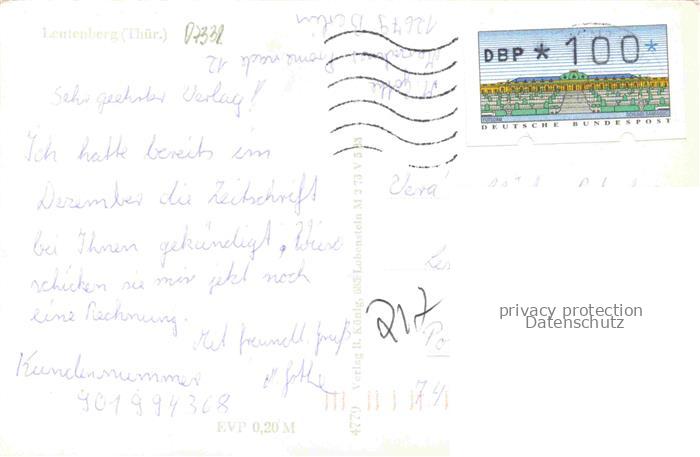 Leutenberg (Thür.)
D7332
12679 Berlin
Promenade 12
M. Gothe
DBP * 100 *
DEUTSCHE BUNDESPOST
Sehr geehrter Verlag!
Ich hatte bereits im
Dezember die Zeitschrift
bei Ihnen gekündigt, Wieso
schicken sie mir jetzt noch
eine Rechnung.
Mit freundl. Gruß
M. Gothe
Kundennummer
901994368
EVP 0,20 M
4779 Verlag R. König, 685 Lobenstein M 2 73 V 5 28
217
74
privacy protection
Datenschutz